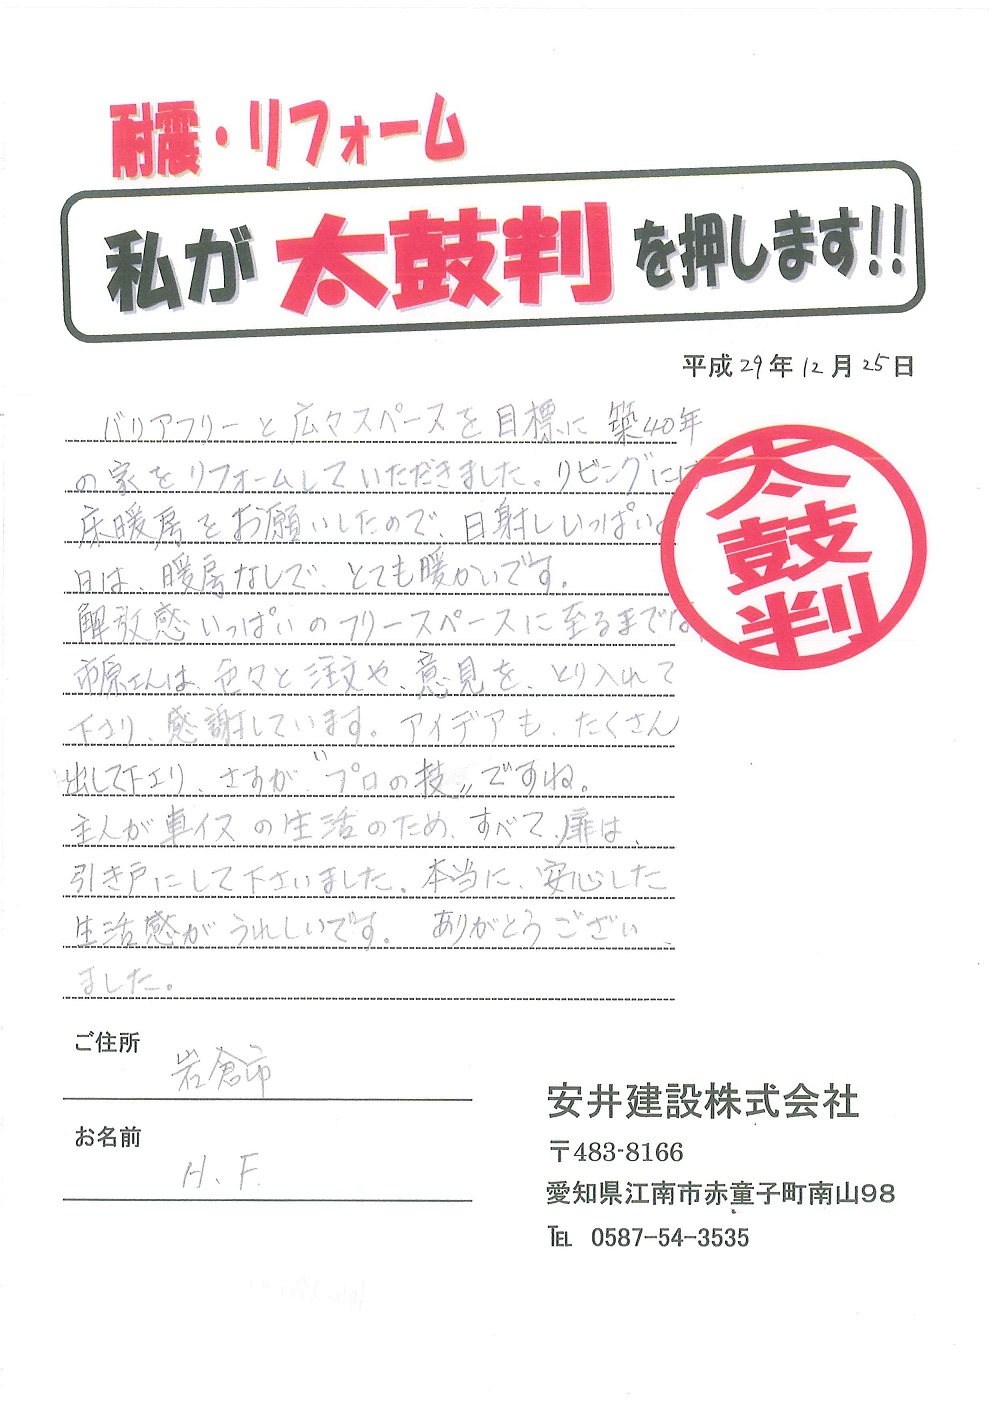 耐震・リフォーム
私が太鼓判を押します!!
平成29年12月25日
バリアフリーと広々スペースを目標に築40年
の家をリフォームしていただきました。リビングには
床暖房をお願いしたので、日射しいっぱいの
日は、暖房なしで、とても暖かいです。
解放感いっぱいのフリースペースに至るまで
市原さんは、色々と注文や、意見を、とり入れて
下さり、感謝しています。アイデアも、たくさん
出して下さり、さすが〝プロの技〟ですね。
主人が車イスの生活のため、すべて、扉は、
引き戸にして下さいました。本当に、安心した
生活感がうれしいです。ありがとうござい
ました。
太鼓判
ご住所
岩倉市
お名前
H.F.
安井建設株式会社
〒483-8166
愛知県江南市赤童子町南山98
TEL 0587-54-3535